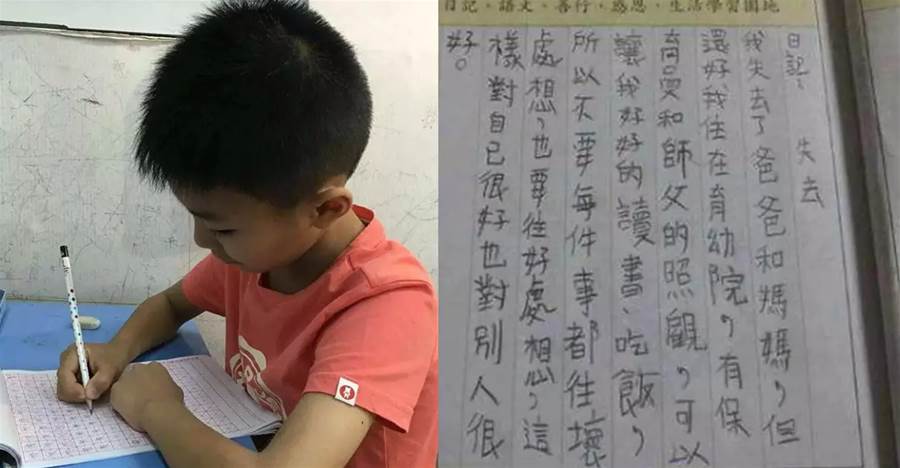 日記、語文、善行、感恩、生活學習園地
日記： 失去
我失去了爸爸和媽媽，但
還好我住在育幼院，有保
育員和師父的照顧，可以
讓我好好的讀書、吃飯，
所以不要每件事都往壞
處想，也要往好處想，這
樣對自己很好也對別人很
好。